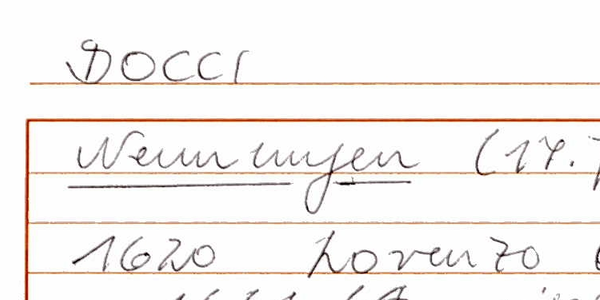 DOCCI
Nennungen (17.
1620 Lorenzo